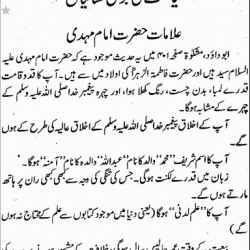 علامات حضرت امام مہدی
ابو داؤد، مشکوٰۃ صفحہ ۴۰۱ میں یہ حدیث موجود ہے کہ حضرت امام مہدی علیہ
السلام سید ہیں اور حضرت فاطمۃ الزہرا کی اولاد میں سے ہیں۔ آپ کا قد و قامت
قدرے لمبا، بدن چست، رنگ کھلا ہوا، اور چہرہ پیغمبر خدا صلی اللہ علیہ وسلم کے
چہرے کے مشابہ ہوگا۔
آپ کے اخلاق پیغمبر خدا صلی اللہ علیہ وسلم کے اخلاق عالیہ کی طرح کے ہوں
گے۔
آپ کا اسم شریف "محمد" والد کا نام "عبداللہ" والدہ کا نام "آمنہ" ہوگا۔
زبان میں قدرے لکنت ہوگی۔ جس کی تنگی کی وجہ سے کبھی کبھی ران پر ہاتھ
مارتے ہوں گے۔
آپ کا "علم لدنی" ہوگا (یعنی دنیا میں موجود کتابوں سے علم کے محتاج نہ ہوں